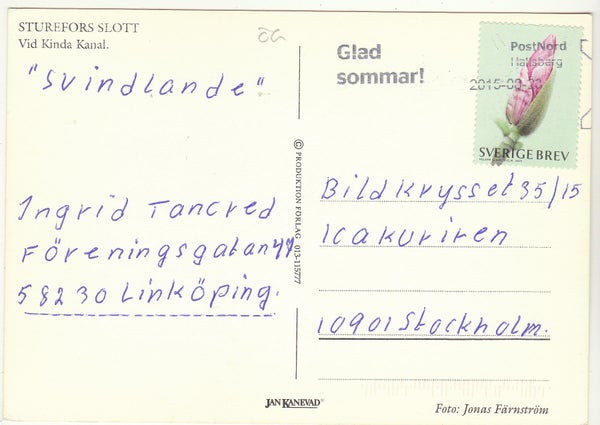 STUREFORS SLOTT
Vid Kinda Kanal.
"Svindlande"
Ingrid Tancred
Föreningsgatan 47
582 30 Linköping.
© PRODUKTION FÖRLAG 013-115777
Glad
sommar!
PostNord
Hallsberg
SVERIGE BREV
Bildkrysset 35/15
Icakuriren
10901 Stockholm.
JAN KANEVAD®
Foto: Jonas Färnström